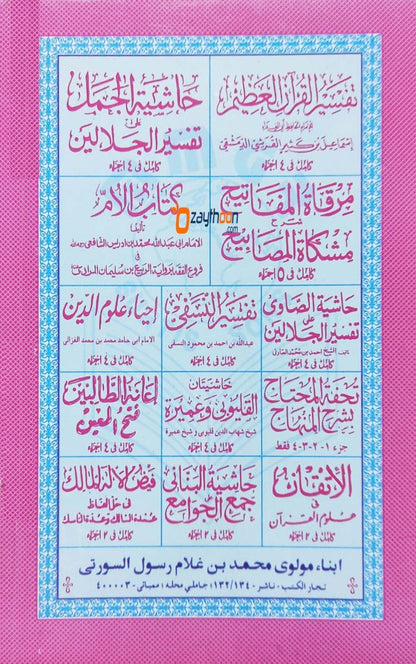 تفسير القرآن العظيم
للإمام الحافظ أبي الفداء
إسماعيل بن كثير القرشي الدمشقي
كامل في ٤ اجزاء
حاشية الجمل
على
تفسير الجلالين
كامل في ٤ اجزاء
مرقاة المفاتيح
شرح
مشكاة المصابيح
كامل في ٥ اجزاء
كتاب الأم
تأليف
الامام ابي عبد الله محمد بن ادريس الشافعي
في
فروع الفقه برواية الربيع بن سليمان المرادي
كامل في ٤ اجزاء
zaythoon
.com
حاشية الصاوي
على
تفسير الجلالين
الشيخ احمد بن محمد الصاوي
كامل في ٤ اجزاء
تفسير النسفي
عبدالله بن احمد بن محمود النسفى
كامل في ٤ اجزاء
إحياء علوم الدين
الامام ابي حامد محمد بن محمد الغزالي
كامل في ٤ اجزاء
تحفة المحتاج
بشرح المنهاج
جزء ١-٢-٣-٤ فقط
حاشيتان
القليوبي وعميرة
شيخ شهاب الدين قليوبي و شيخ عميرة
كامل في ٤ اجزاء
إعانة الطالبين
فتح المعين
كامل في ٤ اجزاء
الإتقان
في
علوم القرآن
كامل في ٢ اجزاء
حاشية البناني
على
جمع الجوامع
كامل في ٢ اجزاء
فيض الإله المالك
في حل الفاظ
عمدة السالك وعدة الناسك
كامل في ٢ اجزاء
ابناء مولوى محمد بن غلام رسول السورتى
تجار الكتب - ناشر - ١٣٢/١٣٤ : جاملي محله : ممباتى - ٤٠٠٠٠٣